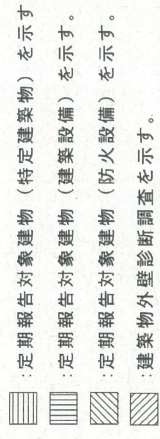 :定期報告対象建物（特定建築物）を示す
:定期報告対象建物（建築設備）を示す。
:定期報告対象建物（防火設備）を示す。
:建築物外壁診断調査を示す。